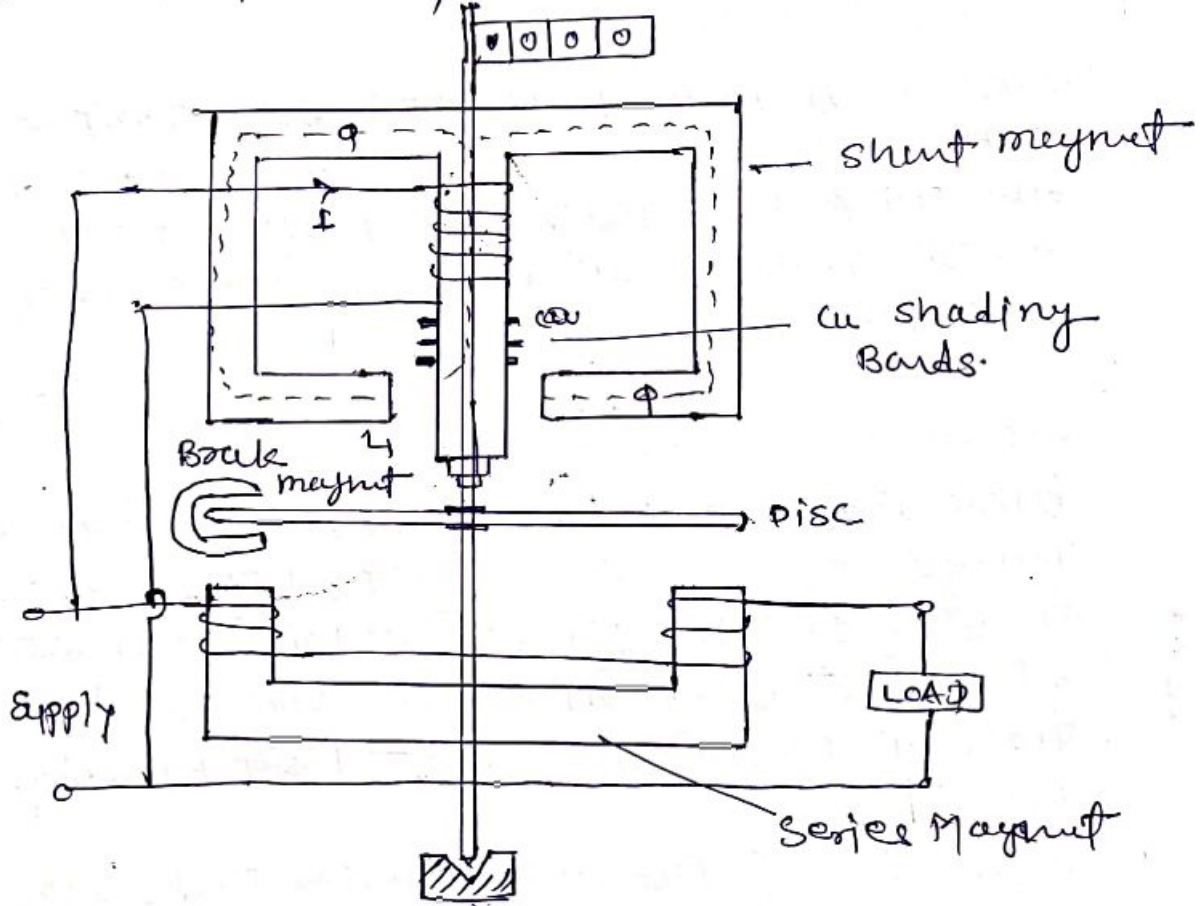 0 0 0
φ
Shunt meynet
I
cu shading
Bands.
Brak
maynet
DISC
φ
Supply
LOAD
Series Maynut